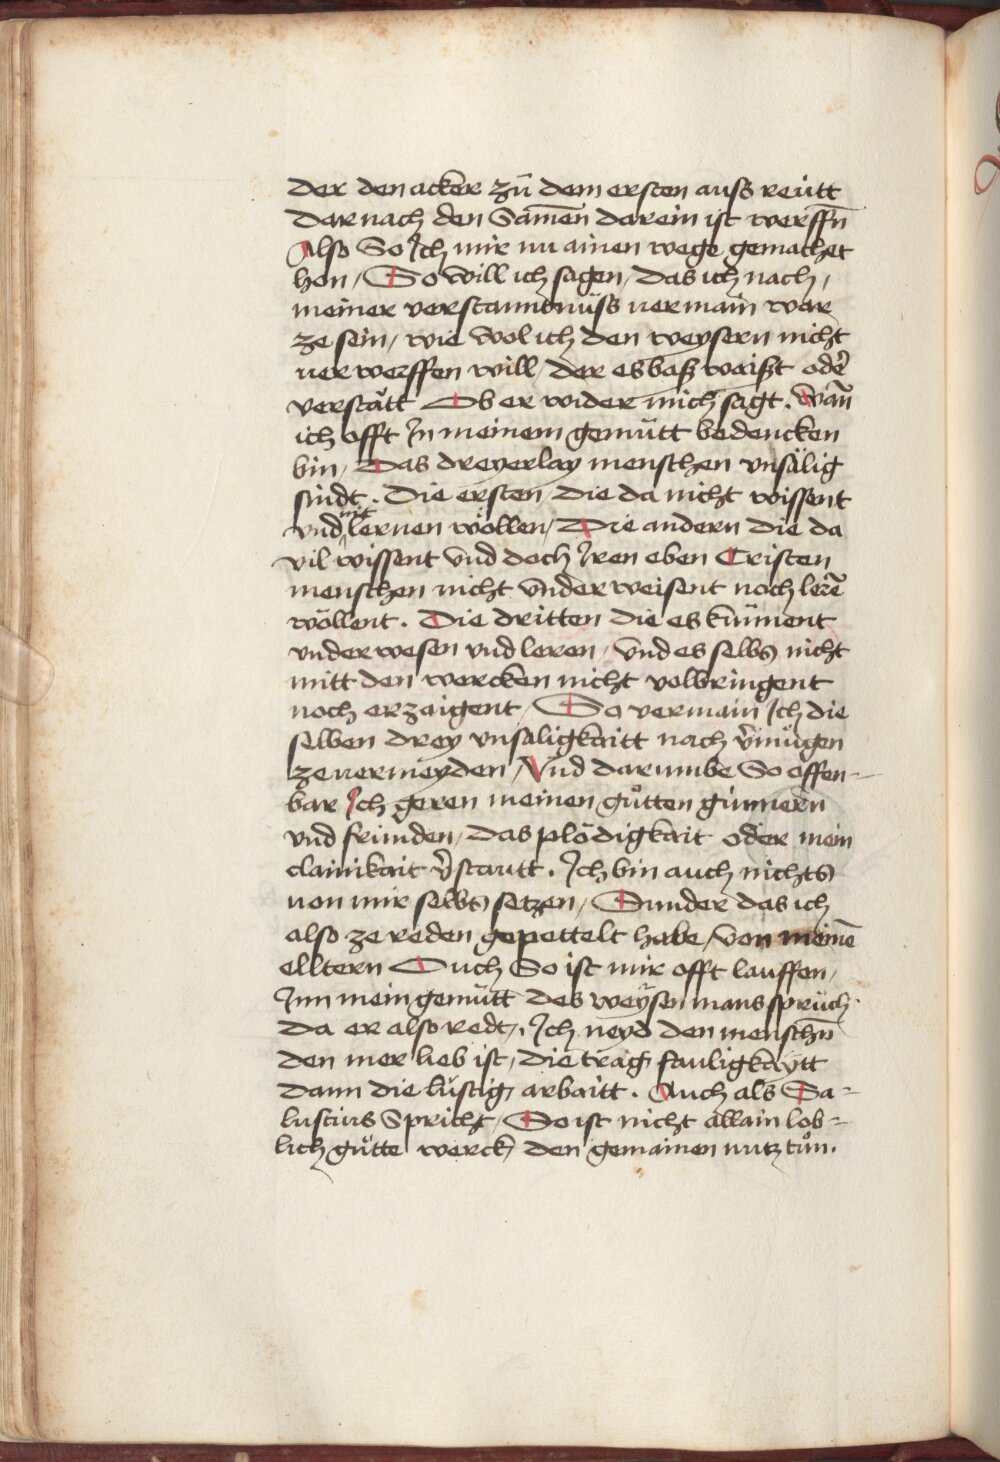 der den acker zů dem ersten auss reütt
dar nach den Samen̄ darein ist werffn̄
Also So Ich mir nu ainen wege gemachet
hon / So will ich sagen / das ich nach /
meiner verstanntnüss uermain war
ze sein / wie wol ich den weysern nicht
uerwerffen will / der es bass waißt oder̄
verstätt Ob er wider mich sagt . Wan̄
ich offt In meinem gemütt bedencken
bin / Das dreyerlay menschen vnsälig
sindt . Die ersten / Die da nicht wissent
nit
vnd lernen wöllen / Die andern die da
vil wissent vnd doch Iren eben Cristen
menschen nicht vnderweisent noch lerē
wöllent . Die dritten die es künnent
vnderwesen vnd leren / vnd es selbs nicht
mitt den wercken nicht volbringent
noch erzaigent / So vermain Ich die
selben drey vnsaligkaitt nach v̄mügen
ze uermeyden / Vnd darumbe So offen-
bar Ich geren meinen gůtten günnern
vnd fründen / das plödigkait oder mein
clainikait v̄stautt . Ich bin auch nichts
uon mir selbs setzen / Sunder das ich
also ze reden gepettelt habe / von meinē
elltern Ouch So ist mir offt lauffen /
Inn mein gemütt des weÿsen mans sprüch
da er also redt / . Ich neyd den menschn̄
den mer lieb ist / die träg fauligkaytt
dann die lüstig arbaitt . Auch als Sa-
lustius Spricht / So ist nicht allain lob-
lich gůtte werck den gemainen nutz tůn .